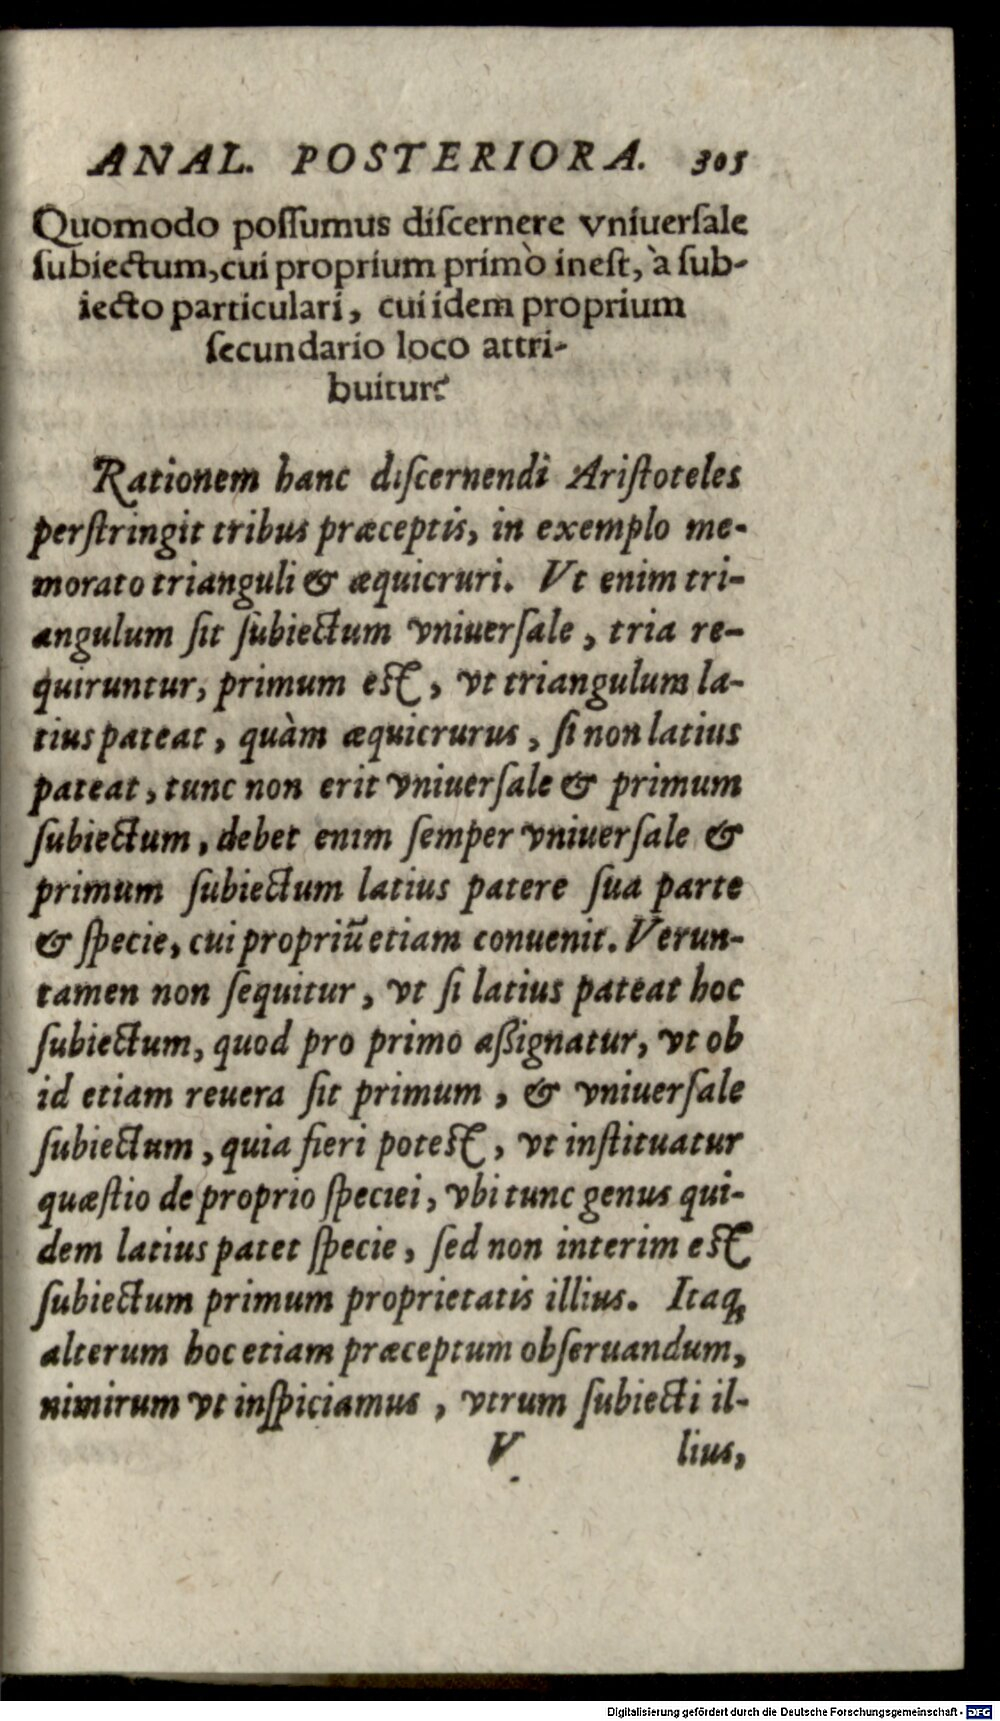 ANAL. POSTERIORA. 305
Quomodo poſſumus diſcernere vniuerſale
ſubiectum, cui proprium primò ineſt, à ſub-
iecto particulari, cui idem proprium
ſecundario loco attri-
buitur?
Rationem hanc diſcernendi Ariſtoteles
perſtringit tribus præceptis, in exemplo me-
morato trianguli & æquicruri. Vt enim tri-
angulum ſit ſubiectum vniuerſale, tria re-
quiruntur, primum eſt, vt triangulum la-
tius pateat, quàm æquicrurus, ſi non latius
pateat, tunc non erit vniuerſale & primum
ſubiectum, debet enim ſemper vniuerſale &
primum ſubiectum latius patere ſua parte
& ſpecie, cui propriũ etiam conuenit. Verun-
tamen non ſequitur, vt ſi latius pateat hoc
ſubiectum, quod pro primo aßignatur, vt ob
id etiam reuera ſit primum, & vniuerſale
ſubiectum, quia fieri poteſt, vt inſtituatur
quæſtio de proprio ſpeciei, vbi tunc genus qui-
dem latius patet ſpecie, ſed non interim eſt
ſubiectum primum proprietatis illius. Itaq;
alterum hoc etiam præceptum obſeruandum,
nimirum vt inſpiciamus, vtrum ſubiecti il-
V lius,
Digitalisierung gefördert durch die Deutsche Forschungsgemeinschaft - DFG